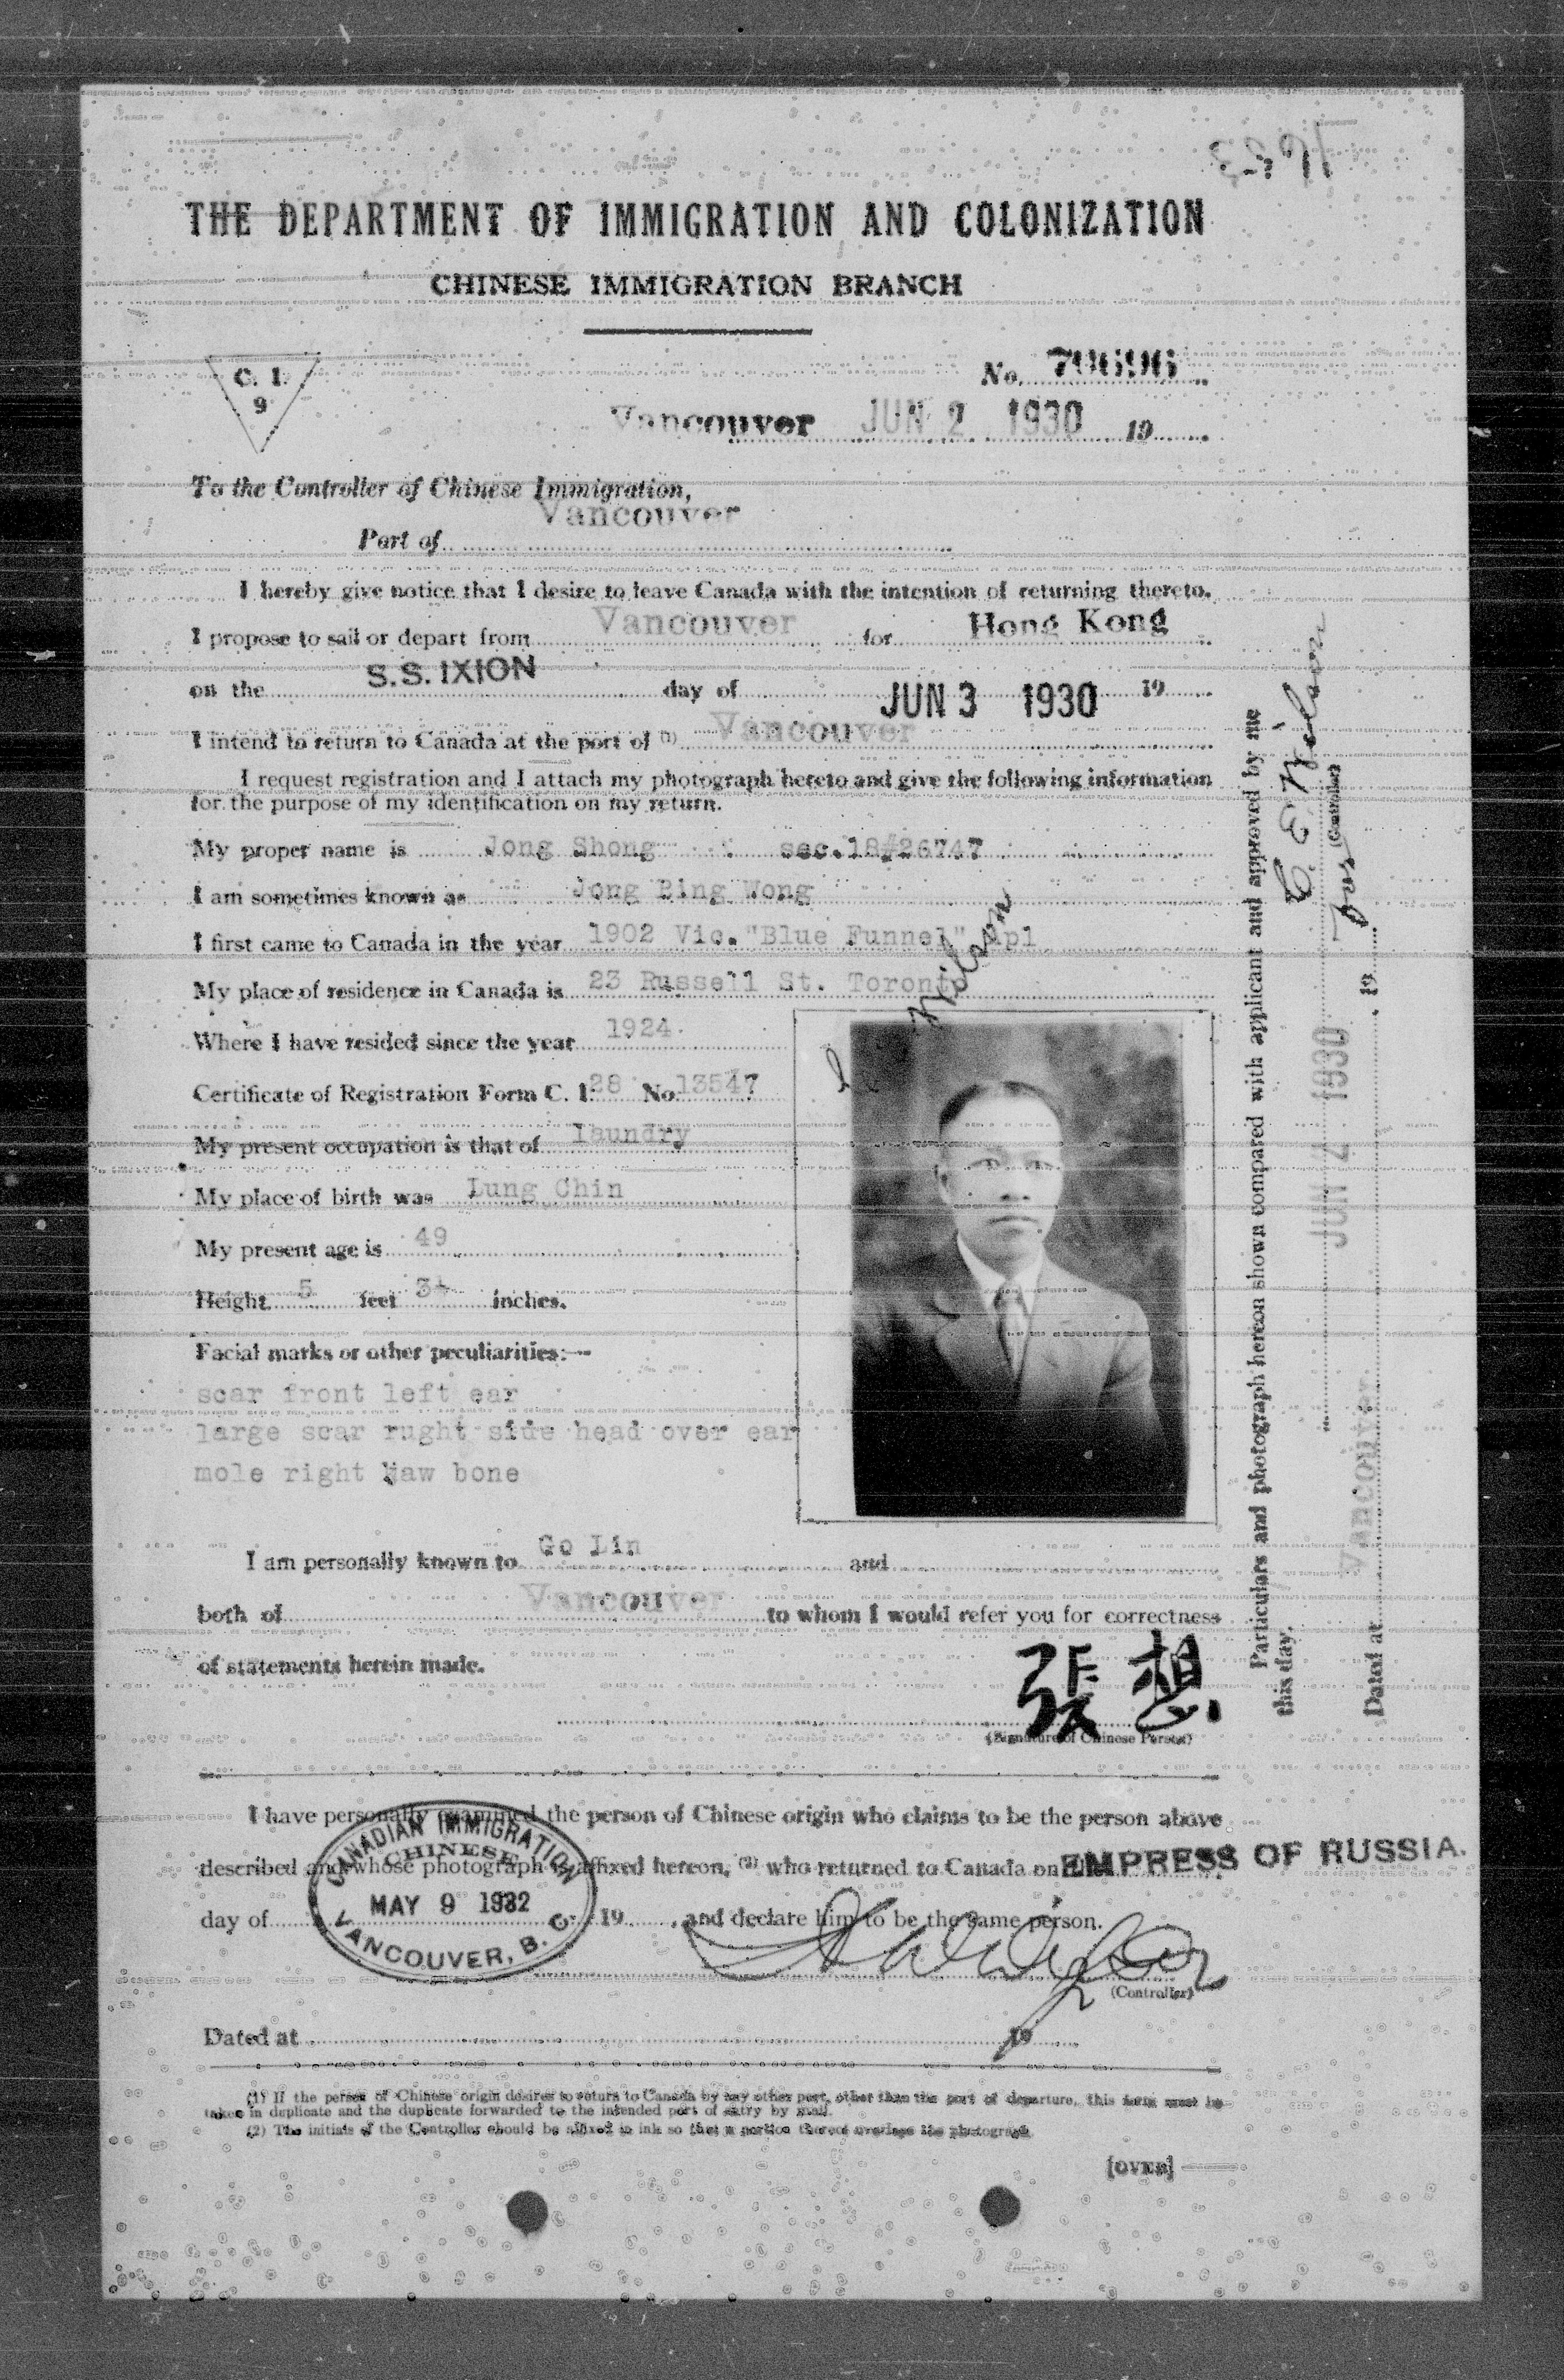 THE DEPARTMENT OF IMMIGRATION AND COLONIZATION
CHINESE IMMIGRATION BRANCH
C. I.
9
No. 79696
Vancouver JUN 2 1930 19
To the Controller of Chinese Immigration,
Vancouver
Port of
I hereby give notice that I desire to leave Canada with the intention of returning thereto.
I propose to sail or depart from Vancouver for Hong Kong
on the S.S. IXION day of JUN 3 1930 19
I intend to return to Canada at the port of (1) Vancouver
I request registration and I attach my photograph hereto and give the following information
for the purpose of my identification on my return.
My proper name is Jong Shong sec.18#26747
I am sometimes known as Jong Bing Wong
I first came to Canada in the year 1902 Vic. "Blue Funnel" Apl
My place of residence in Canada is 23 Russell St. Toronto
Where I have resided since the year 1924
Certificate of Registration Form C. I. 28 No. 13547
My present occupation is that of laundry
My place of birth was Lung Chin
My present age is 49
Height 5 feet 3¼ inches.
Facial marks or other peculiarities:—
scar front left ear
large scar rught side head over ear
mole right jaw bone
Wilson
I am personally known to Go Lin and
both of Vancouver to whom I would refer you for correctness
of statements herein made.
張想
(Signature of Chinese Person)
Particulars and photograph hereon shown compared with applicant and approved by me
this day. JUN 2 1930
C E Wilson
(Controller)
Dated at Vancouver 19
I have personally examined the person of Chinese origin who claims to be the person above
described and whose photograph is affixed hereon, (2) who returned to Canada on EMPRESS OF RUSSIA.
day of 19 , and declare him to be the same person.
CANADIAN IMMIGRATION
CHINESE
MAY 9 1932
VANCOUVER, B. C.
(Controller)
Dated at 19
(1) If the person of Chinese origin desires to return to Canada by any other port, other than the port of departure, this form must be
taken in duplicate and the duplicate forwarded to the intended port of entry by mail.
(2) The initials of the Controller should be affixed in ink so that a portion thereof overlaps the photograph.
[OVER]